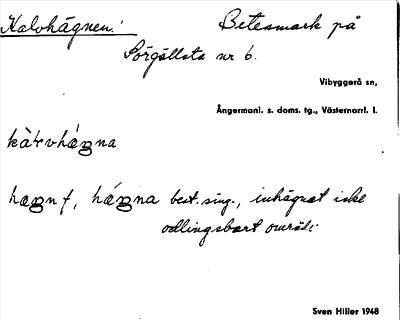 Kalvhägnen: Betesmark på
Sörgållsta nr 6.
Vibyggerå sn,
Ångermanl. s. doms. tg., Västernorrl. l.
hägn f, best. sing., inhägnat icke
odlingsbart område
Sven Hiller 1948